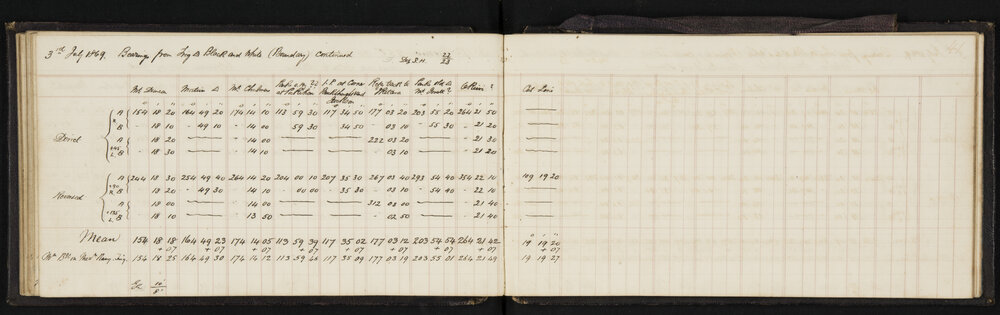 3rd July 1869. Bearings from Trig Δ Black and White (Boundary) continued
22/23
Mt Duncan Δ Mt Clubran
° ' " ° ' " ° ' " ° ' " ° ' " ° ' " ° ' " ° '
A 154 18 20 164 49 20 174 14 10 113 59 30 117 34 50 177 03 20 203 55 20 264 21 50
R B - 18 10 - 49 10 - 14 00 59 30 34 50 - 03 10 - 55 30 - 21 20
Direct
A - 18 20 - 14 00 222 03 20 - 21 30
+45 L B - 18 30 - 14 10 - 03 10 - 21 20
A 244 18 30 254 49 40 264 14 20 204 00 10 207 35 30 267 03 40 293 54 40 354 22 10 109 19 20
+90 R B 18 20 - 49 30 - 14 10 - 00 00 - 35 30 - 03 10 - 54 40 - 22 10
Reversed
A - 18 00 - 14 00 312 03 00 - 21 40
+135 L B - 18 10 - 13 50 - 02 50 - 21 40
° ' "
Mean 154 18 18 164 49 23 174 14 05 113 59 39 117 35 02 177 03 12 203 54 54 264 21 42 19 19 20
+ 07 + 07 + 07 + 07 + 07 + 07 + 07 + 07 + 07
154 18 25 164 49 30 174 14 12 113 59 46 117 35 09 177 03 19 203 55 01 264 21 49 19 19 27